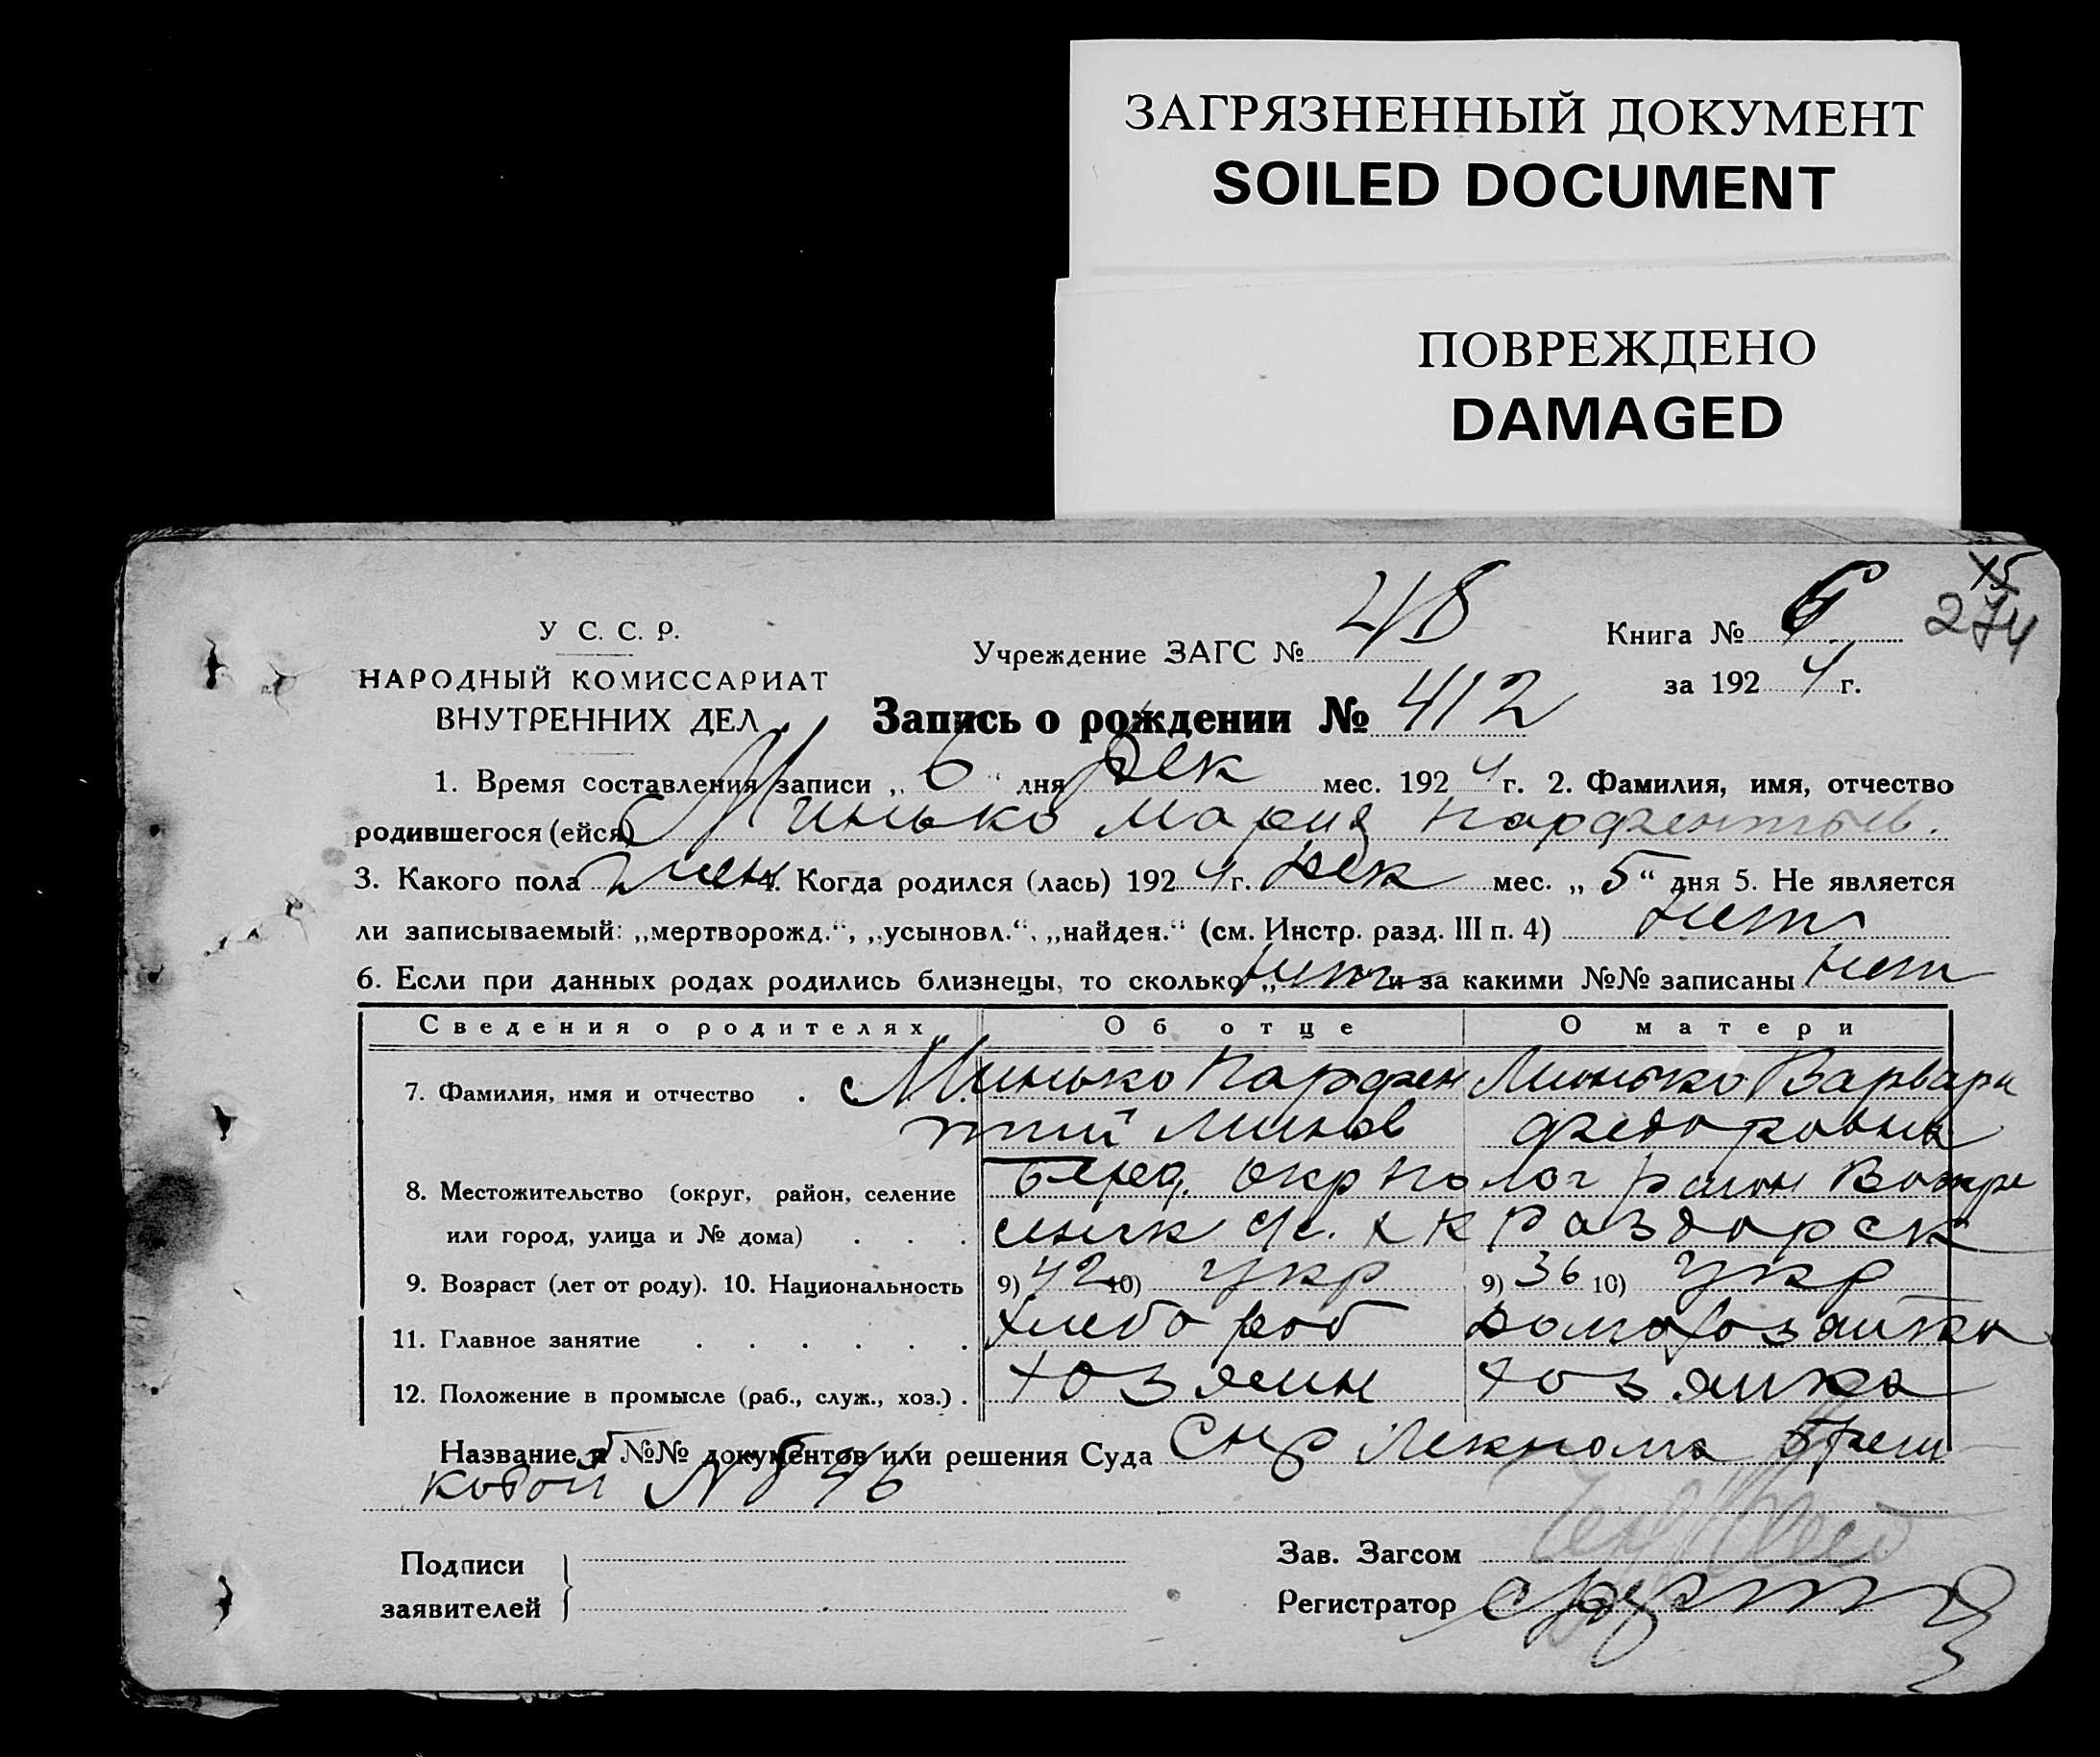 ЗАГРЯЗНЕННЫЙ ДОКУМЕНТ
SOILED DOCUMENT
ПОВРЕЖДЕНО
DAMAGED
15
274
У С. С. Р.
НАРОДНЫЙ КОМИССАРИАТ
ВНУТРЕННИХ ДЕЛ
Учреждение ЗАГС № 48
Книга № 6
за 1924 г.
Запись о рождении № 412
1. Время составления записи „ 6 “ дня Дек мес. 1924 г. 2. Фамилия, имя, отчество
родившегося (ейся) Минько Мария Парфентьев.
3. Какого пола жен 4. Когда родился (лась) 1924 г. Дек мес. „ 5 “ дня 5. Не является
ли записываемый: „мертворожд.“, „усыновл.“, „найден.“ (см. Инстр. разд. III п. 4) нет
6. Если при данных родах родились близнецы, то сколько „ нет и за какими №№ записаны нет
Сведения о родителях Об отце О матери
7. Фамилия, имя и отчество . Минько Парфен Минько Варвара
тий Минов Федоровна
8. Местожительство (округ, район, селение Берд. окр Полог район
или город, улица и № дома) . . . Раздорск
9. Возраст (лет от роду). 10. Национальность 9) 42 10) Укр 9) 36 10) Укр
11. Главное занятие . . . . . . хлебороб домохозяйка
12. Положение в промысле (раб., служ., хоз.) . хозяин хозяйка
Название и №№ документов или решения Суда Лекпома
№ 46
Подписи
заявителей
Зав. Загсом
Регистратор